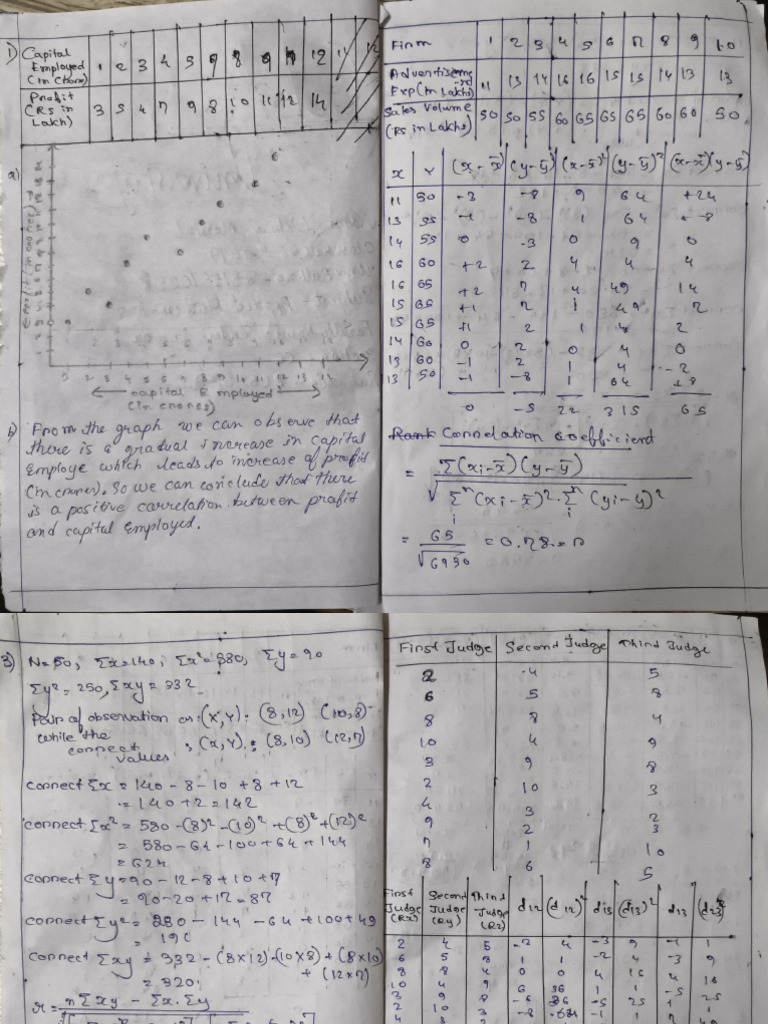 1) Capital Employed (in Crore) 1 2 3 4 5 7 8 9 12
Profit (Rs in Lakh) 3 5 4 7 9 8 10 11 12 14
a)
capital Employed
(in crores)
b) From the graph we can observe that
there is a gradual increase in capital
employe which leads to increase of profit
(in crores). So we can conclude that there
is a positive correlation between profit
and capital employed.
Firm 1 2 3 4 5 6 7 8 9 10
Advertising Exp (in Lakhs) 11 13 14 16 16 15 15 14 13 13
Sales Volume (Rs in Lakhs) 50 50 55 60 65 65 65 60 60 50
x Y (x-x̄) (y-ȳ) (x-x̄)² (y-ȳ)² (x-x̄)(y-ȳ)
11 50 -3 -8 9 64 +24
13 -1 -8 1 64
14 55 0 -3 0 9 0
16 60 +2 2 4 4 4
16 65 +2 7 4 49 14
15 65 +1 7 1 49
15 65 +1 2 1 2
14 60 0 2 0 4 0
13 60 -1 2 1 4 -2
13 50 -1 -8 1 64
0 -5 22 315 65
Rank Correlation coefficient
= Σ(xi-x̄)(y-ȳ) / √Σ(xi-x̄)².Σ(yi-ȳ)²
= 65/√6930 = 0.78 = r
3) N=50, Σx=140, Σx²=580, Σy=90
Σy²=250, Σxy=332
Pair of observation as (X,Y): (8,12) (10,8)
while the
correct values : (X,Y): (8,10) (12,7)
correct Σx = 140-8-10+8+12
= 140+2=142
correct Σx² = 580-(8)²-(10)²+(8)²+(12)²
= 580-64-100+64+144
= 624
correct Σy=90-12-8+10+7
= 90-20+17=87
correct Σy² = 250-144-64+100+49
= 190
correct Σxy = 332-(8x12)-(10x8)+(8x10)
+(12x7)
= 320
r = nΣxy - Σx.Σy
First Judge Second Judge Third Judge
2 4 5
6 5 8
8 8 4
10 4 9
3 9 8
2 10 3
4 3 2
9 2 3
7 1 10
8 6 5
First Judge (Rx) Second Judge (Ry) Third Judge (Rz) d12 (d12)² d13 (d13)² d23 (d23)²
2 4 5 -2 4 -3 9 -1 1
6 5 8 1 1 -2 4 -3 9
8 8 4 0 0 4 16 4 16
10 4 9 6 36 1 1 -5
3 9 8 -6 36 -5 25 1
2 10 3 -8